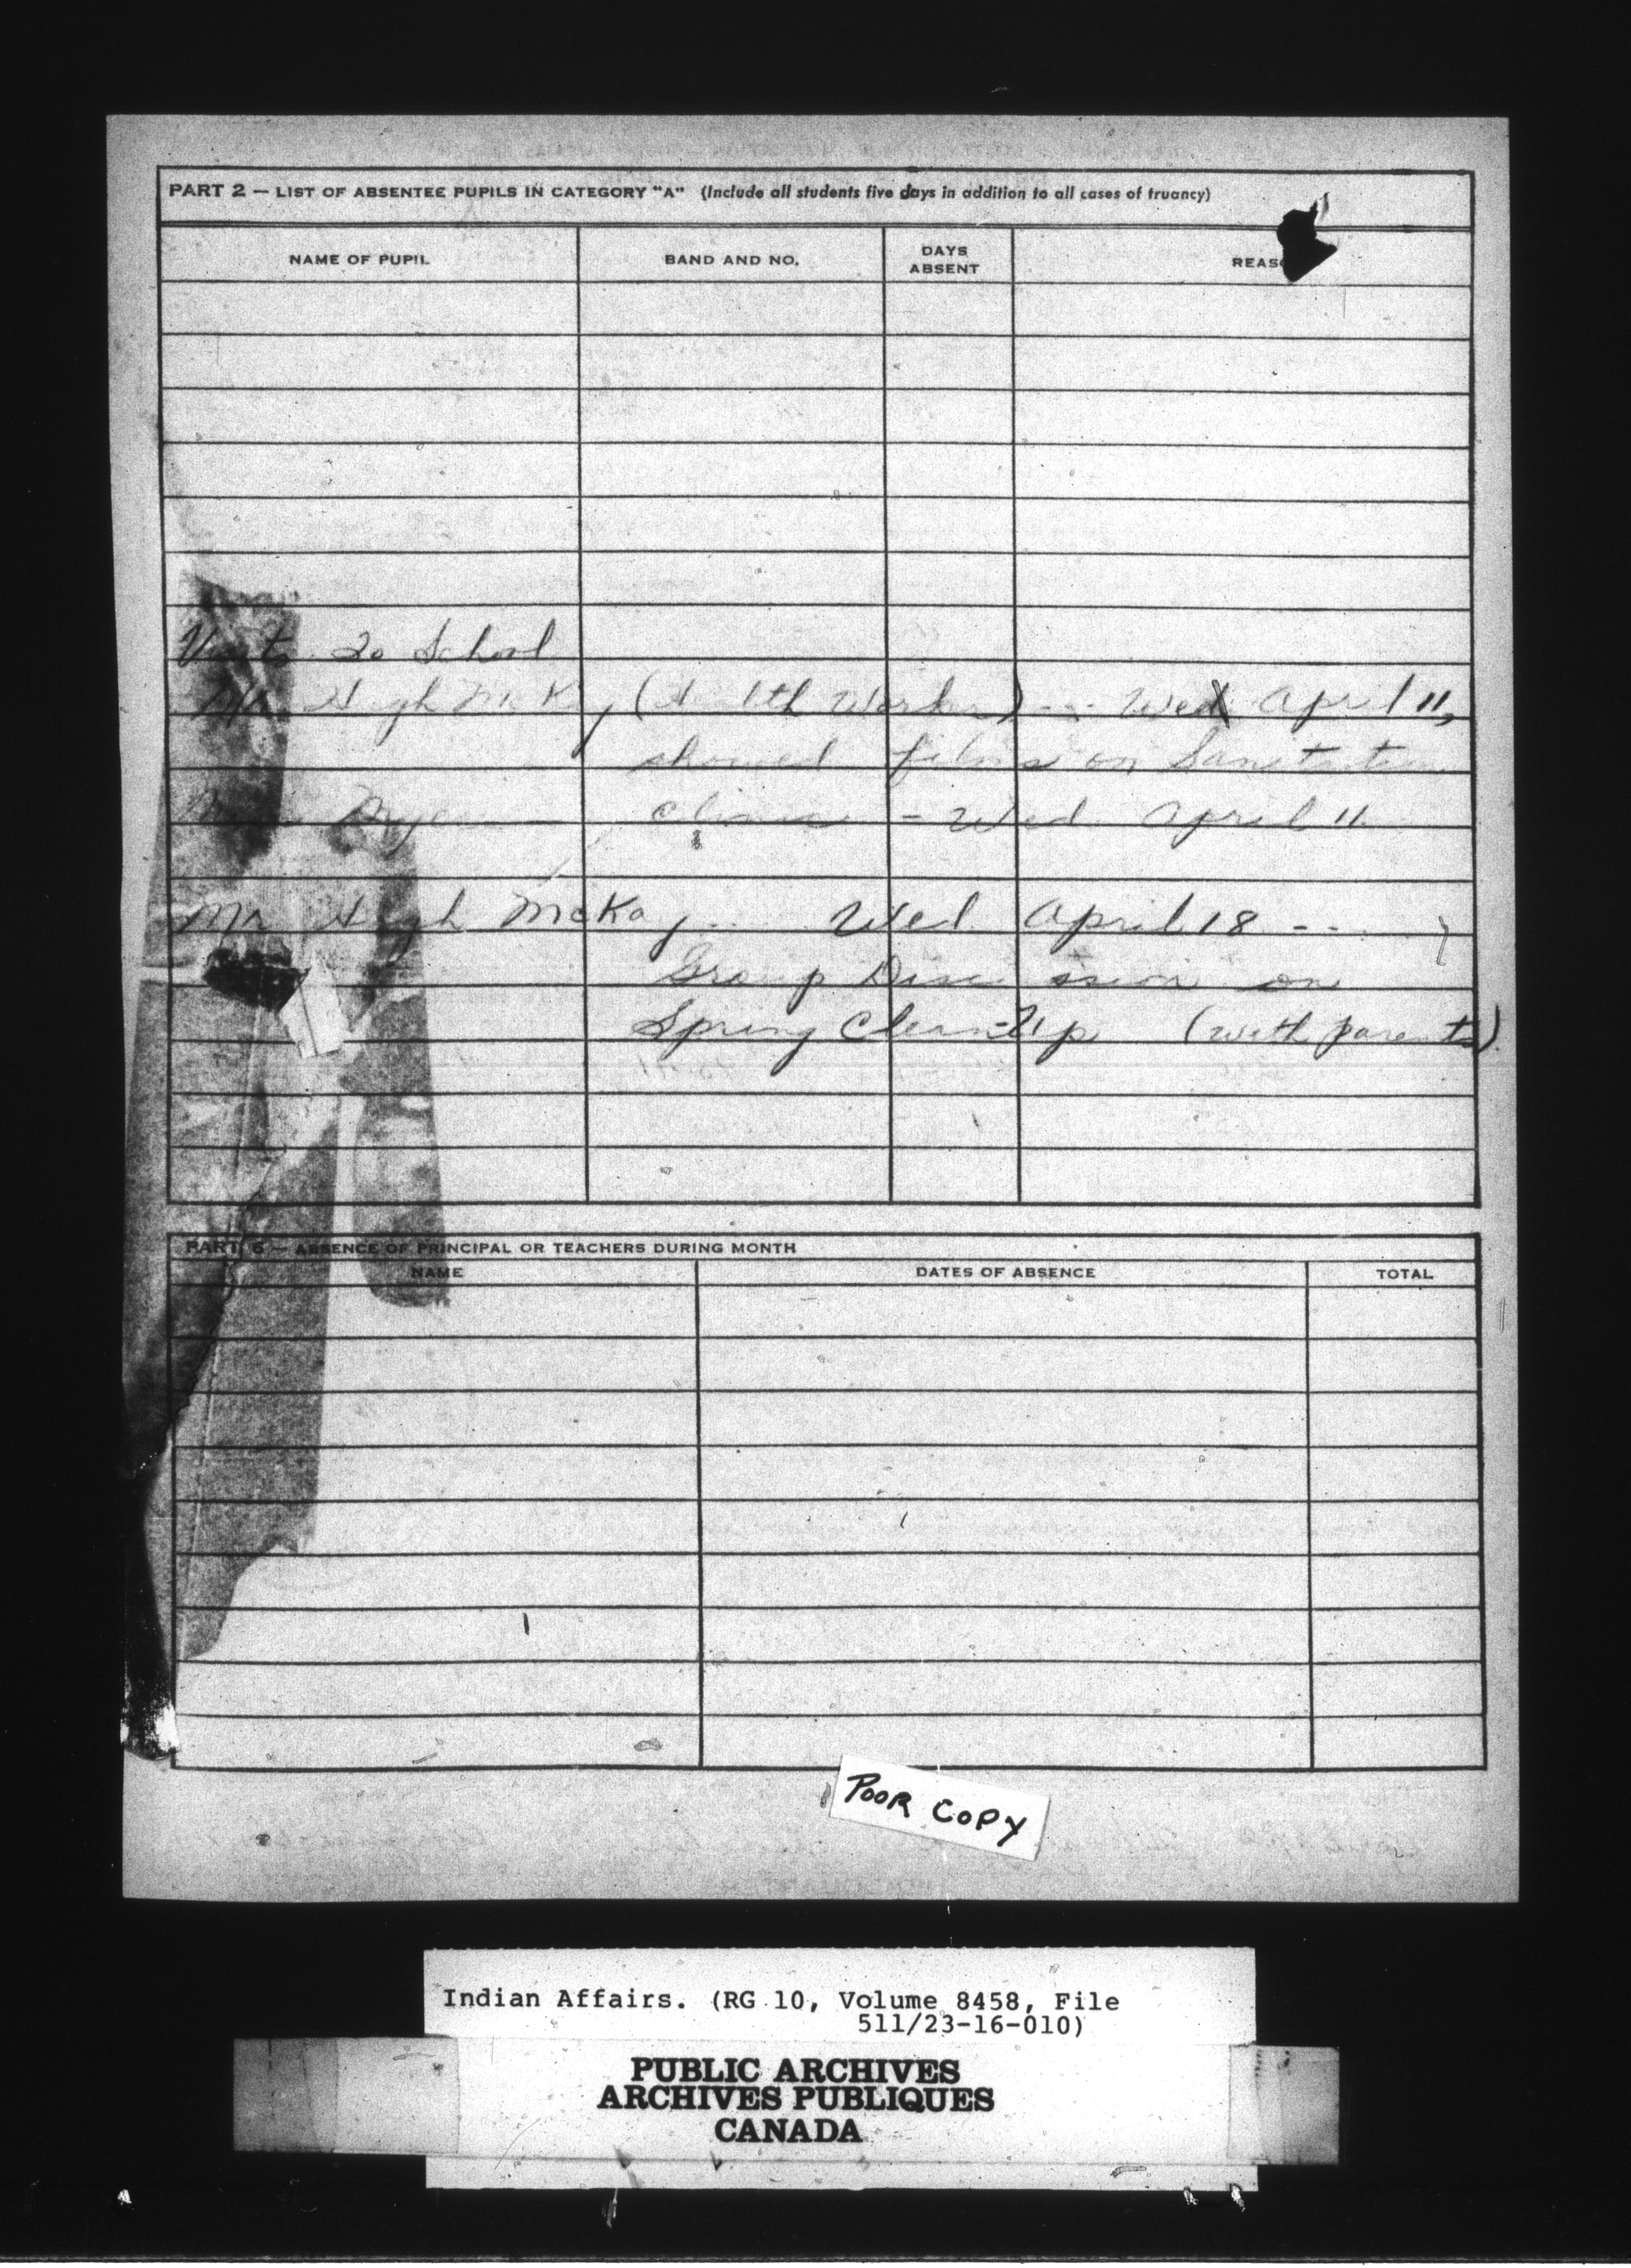 PART 2 — LIST OF ABSENTEE PUPILS IN CATEGORY "A" (Include all students five days in addition to all cases of truancy)
NAME OF PUPIL BAND AND NO. DAYS ABSENT REAS
Visits to School
Mr Hugh McKay (Health Worker) --- Wed April 11,
showed films on Sanitation
clinic - Wed April 11
Mr Hugh McKay -- Wed April 18 --
Group Discussion on
Spring Clean-Up (with parents)
PART 6 — ABSENCE OF PRINCIPAL OR TEACHERS DURING MONTH
NAME DATES OF ABSENCE TOTAL
POOR COPY
Indian Affairs. (RG 10, Volume 8458, File
511/23-16-010)
PUBLIC ARCHIVES
ARCHIVES PUBLIQUES
CANADA